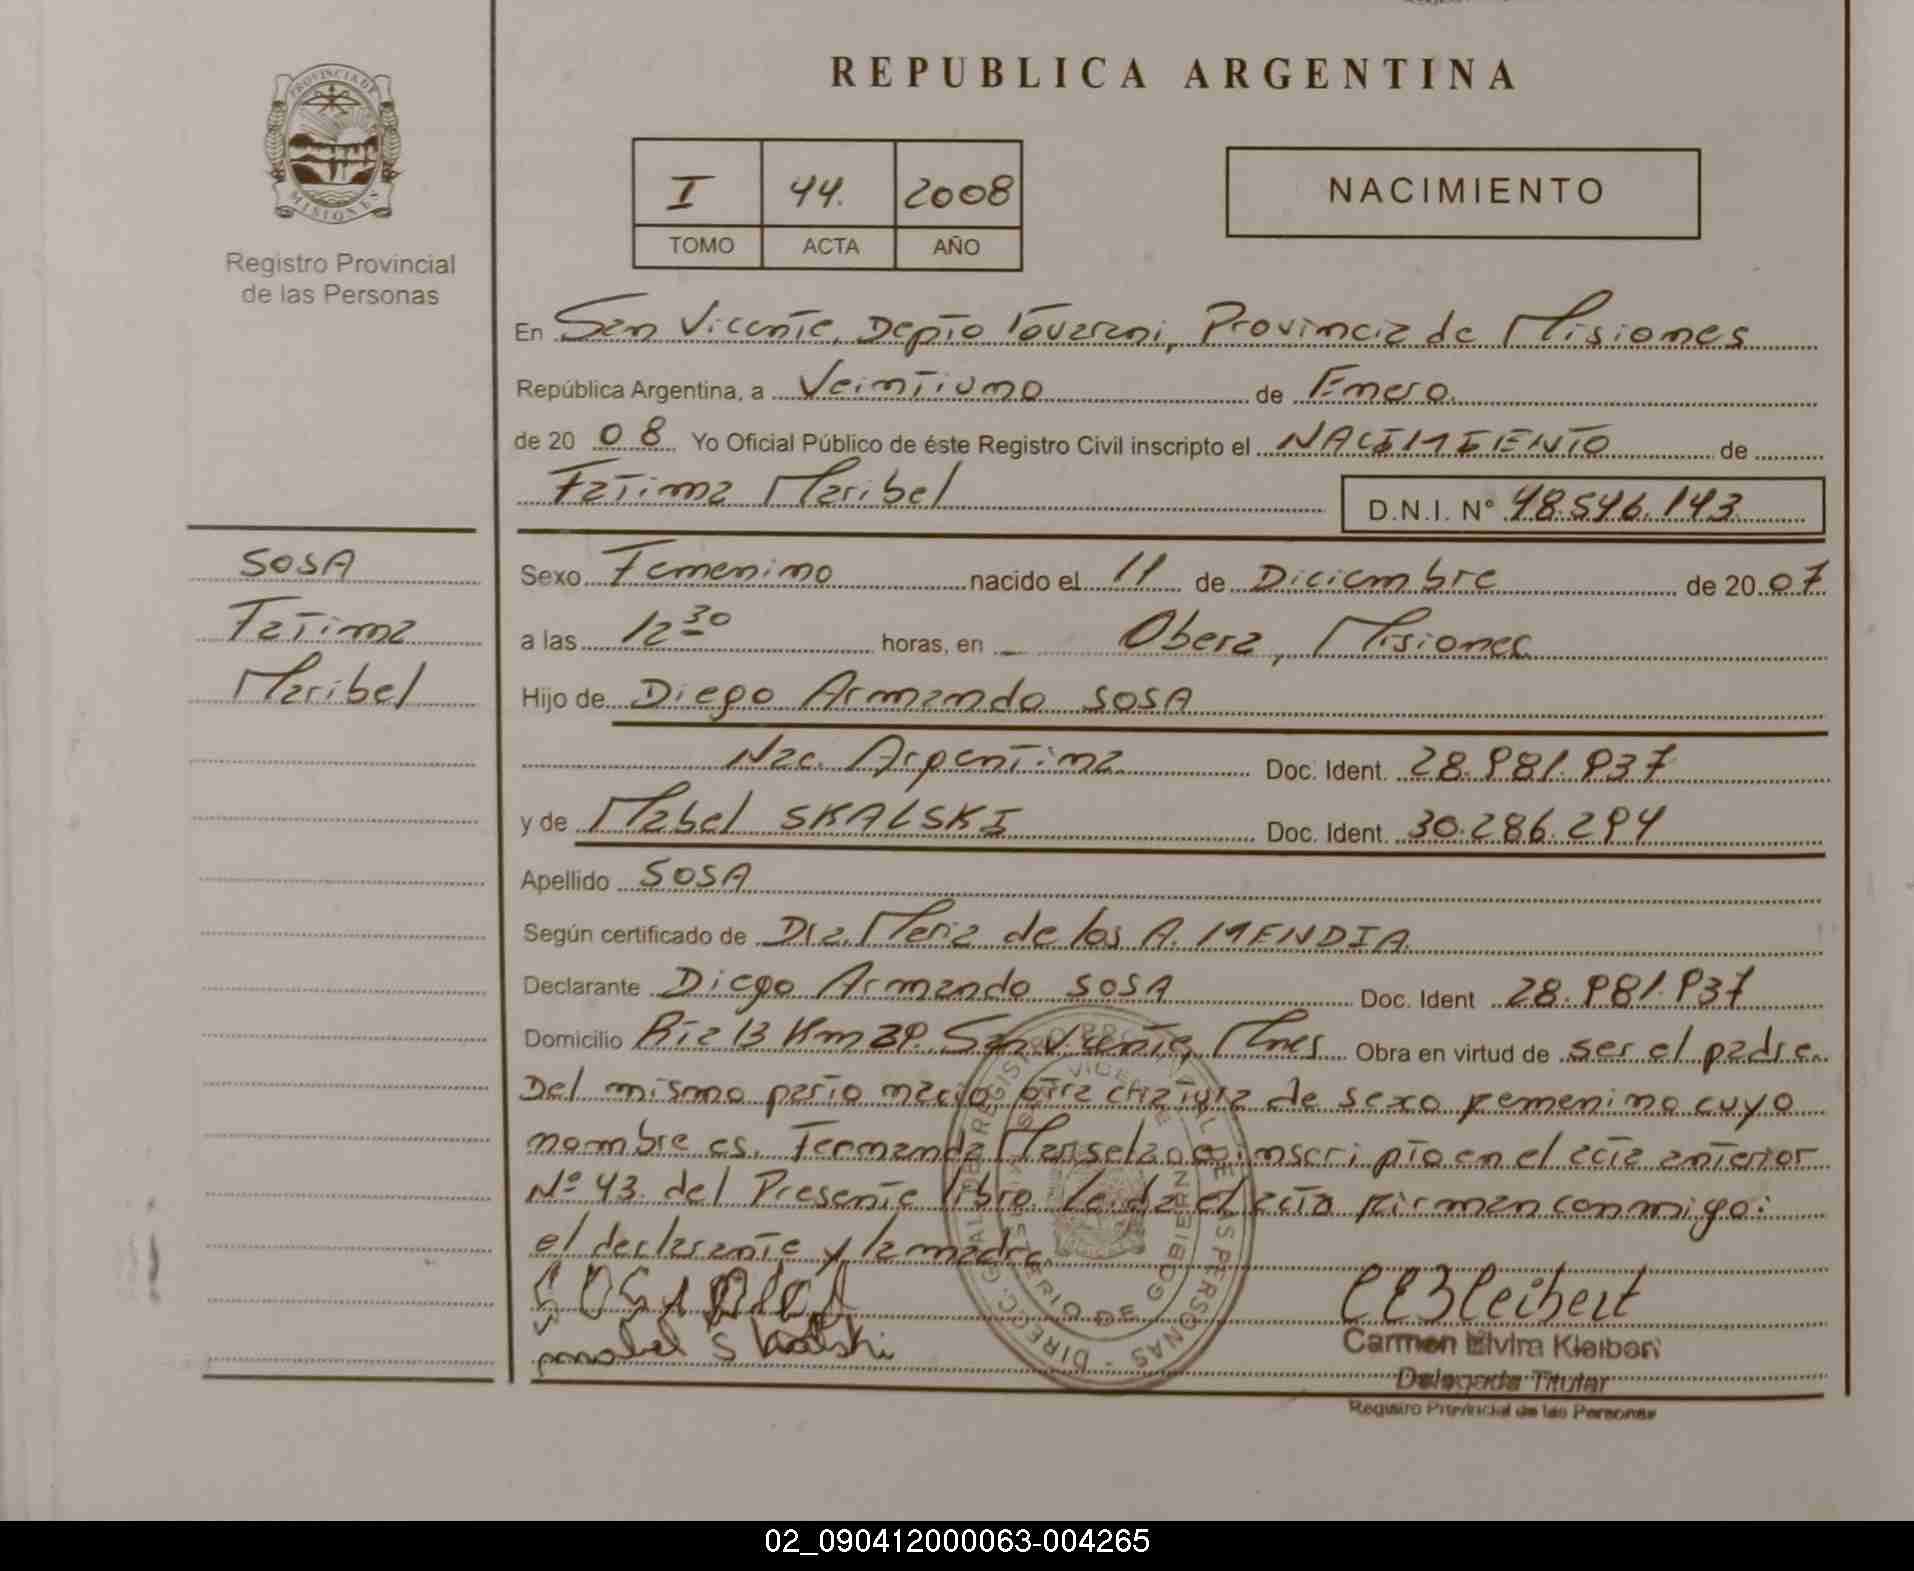 REPUBLICA ARGENTINA
PROVINCIA DE
MISIONES
Registro Provincial
de las Personas
I 44. 2008
TOMO ACTA AÑO
NACIMIENTO
En San Vicente, Depto Guarani, Provincia de Misiones
República Argentina, a Veintiuno de Enero.
de 20 08 Yo Oficial Público de éste Registro Civil inscripto el NACIMIENTO de
Fatima Maribel
D.N.I. N° 48.546.143
SOSA
Fatima
Maribel
Sexo Femenino nacido el 11 de Diciembre de 20 07
a las 12 30 horas, en Obera, Misiones
Hijo de Diego Armando SOSA
Nac. Argentina Doc. Ident. 28.981.937
y de Mabel SKALSKI Doc. Ident. 30.286.294
Apellido SOSA
Según certificado de Dra. Maria de los A. MENDIA
Declarante Diego Armando SOSA Doc. Ident 28.981.937
Domicilio 13 Km 39. San Vicente, Mnes Obra en virtud de ser el padre.
Del mismo parto nacio otra criatura de sexo femenino cuyo
nombre es. Fernanda inscripto en el acta anterior
Nº 43. del Presente libro. Leida el acta firman conmigo:
el declarante y la madre.
SOSA
mabel Skalski
Carmen Elvira Kleibert
Delegada Titular
Registro Provincial de las Personas
02_090412000063-004265